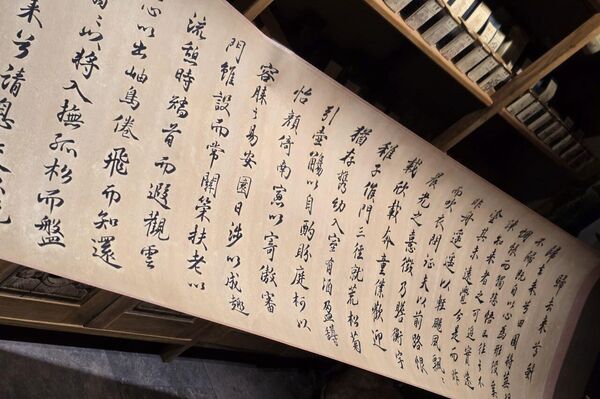 歸去來兮辭
歸去來兮田園將蕪胡
不歸既自以心為形役奚
惆悵而獨悲悟已往之不
諫知來者之可追實迷途
其未遠覺今是而昨
非舟遙遙以輕颺風飄飄
而吹衣問征夫以前路恨
晨光之熹微乃瞻衡宇
載欣載奔童僕歡迎
稚子候門三徑就荒松菊
猶存攜幼入室有酒盈罇
引壺觴以自酌眄庭柯以
怡顏倚南窓以寄傲審
容膝之易安園日涉以成趣
門雖設而常關策扶老以
流憩時矯首而遐觀雲
心以出岫鳥倦飛而知還
以將入撫孤松而盤
來兮請息